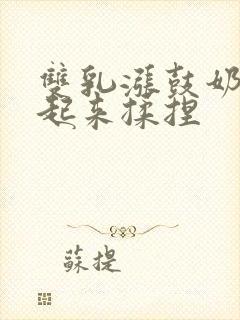 雙乳漲鼓奶
起来揉捏
蘇提